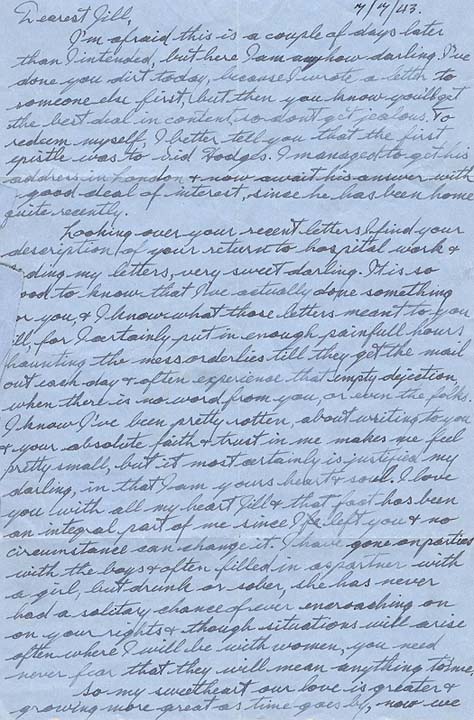 7/7/43.
Dearest Jill,
I'm afraid this is a couple of days later
than I intended, but here I am anyhow darling. I've
done you dirt today, because I wrote a letter to
someone else first, but then you know you'll get
the best deal in content, so don't get jealous. To
redeem myself, I better tell you that the first
epistle was to Sid Hodges. I managed to get his
address in London & now await his answer with
good deal of interest, since he has been home
quite recently.
Looking over your recent letters I find your
description of your return to hospital work &
ding my letters, very sweet darling. It is so
ood to know that I've actually done something
or you, & I know what those letters meant to you
ill, for I certainly put in enough painfull hours
haunting the mess orderlies till they get the mail
out each day & often experience that empty dejection,
when there is no word from you, or even the folks.
I know I've been pretty rotten, about writing to you
& your absolute faith & trust in me makes me feel
pretty small, but it most certainly is justified my
darling, in that I am yours heart & soul. I love
you with all my heart Jill & that fact has been
an integral part of me since I left you & no
circumstance can change it. I have gone on parties
with the boys & often filled in as partner with
a girl, but drunk or sober, she has never
had a solitary chance of ever encroaching on
on your rights & though situations will arise
often where I will be with women, you need
never fear that they will mean anything to me.
So my sweetheart our love is greater &
growing more great as time goes by, now we